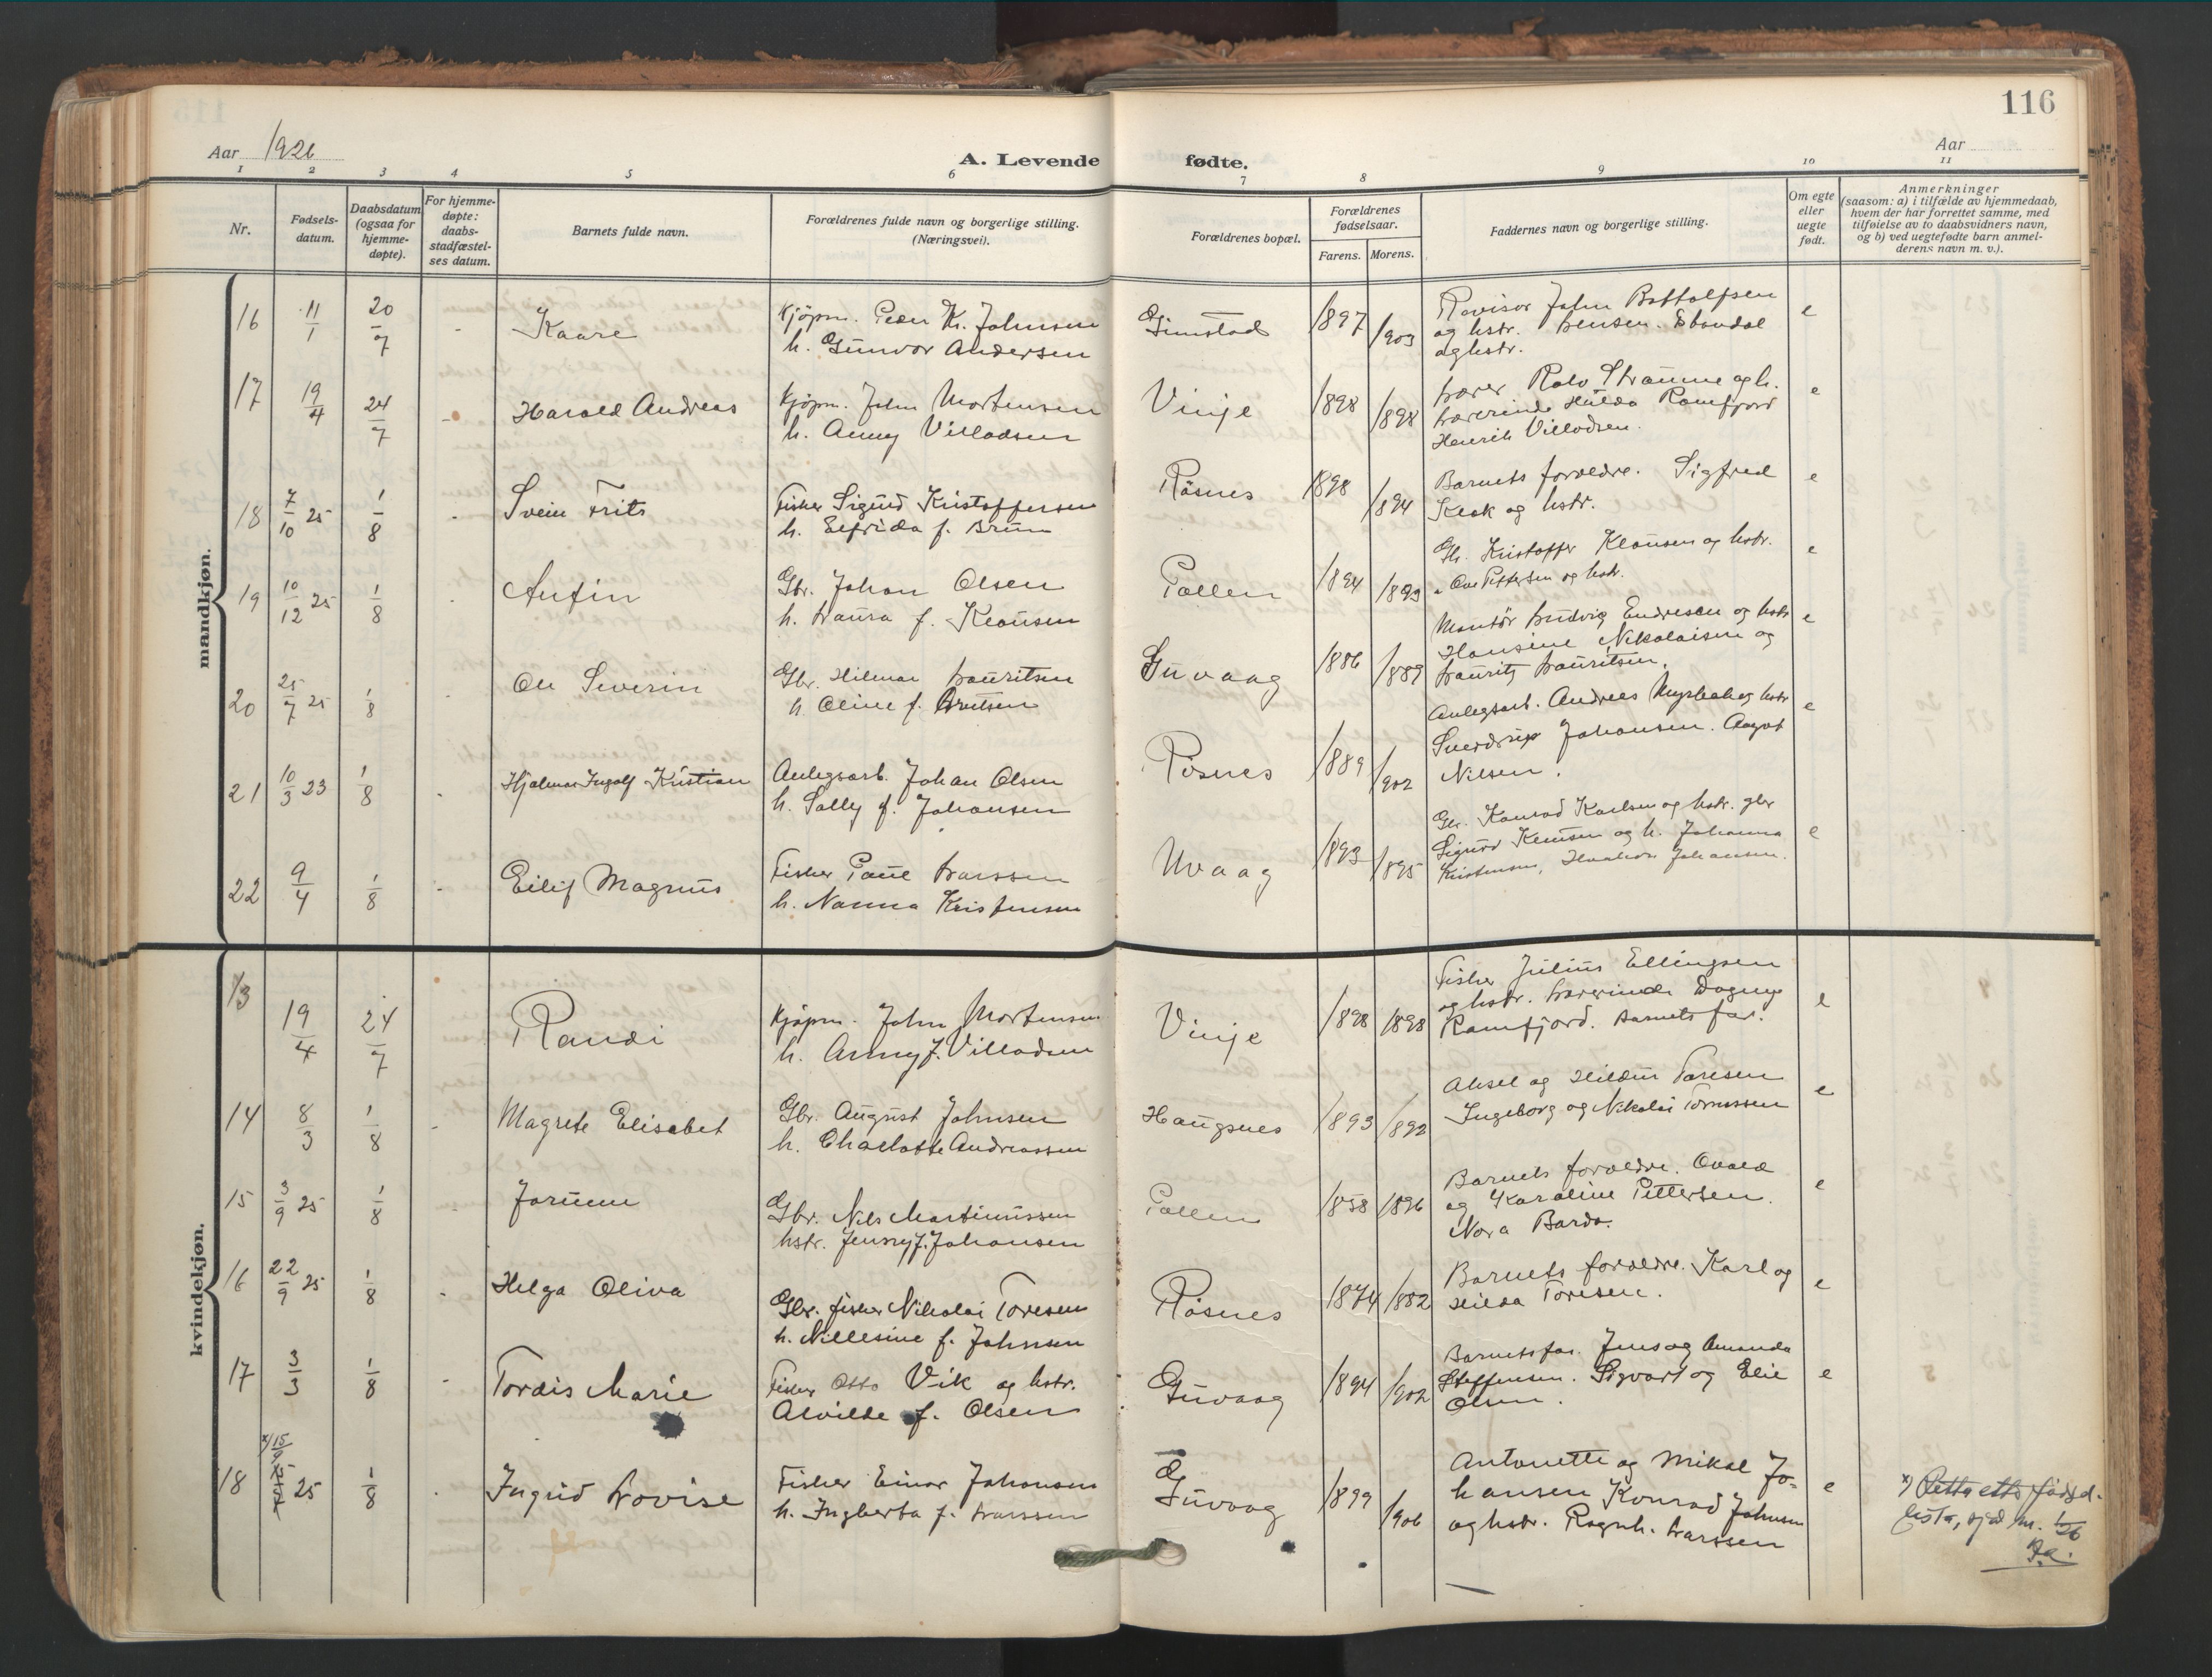 116
Aar 1926
A. Levende fødte.
Aar
1 2 3 4 5 6 7 8 9 10 11
Nr.
Fødsels-
datum.
Daabsdatum
(ogsaa for
hjemme-
døpte).
For hjemme-
døpte:
daabs-
stadfæstel-
ses datum.
Barnets fulde navn.
Forældrenes fulde navn og borgerlige stilling.
(Næringsvei).
Forældrenes bopæl.
Forældrenes
fødselsaar.
Farens. Morens.
Faddernes navn og borgerlige stilling.
Om egte
eller
uegte
født.
Anmerkninger
(saasom: a) i tilfælde av hjemmedaab,
hvem der har forrettet samme, med
tilføielse av to daabsvidners navn,
og b) ved uegtefødte barn anmel-
derens navn m. v.).
mandkjøn.
16 11/1 20/7 - Kaare
Kjøpm. Peder K. Johnsen
h. Gunvor Andersen
Gimstad 1897 1903
Revisor John Bottolfsen
og hstr. Jensen
og hstr.
e
17 19/4 24/7 - Harald Andreas
Kjøpm. John Mortensen
h. Anny Villadsen
Vinje 1898 1898
Lærer Rolv Straume og h.
Lærerinde Hilda Ramfjord
Henrik Villadsen.
e
18 7/10 25 1/8 - Svein Frits
Fisker Sigurd Kristoffersen
h. Elfrida f. Brun
Røsnes 1898 1894
Barnets forældre. Sigfred
Klak og hstr.
e
19 10/12 25 1/8 - Anfin
Gbr. Johan Olsen
h. Laura f. Klausen
Pollen 1894 1893
Gbr. Kristoffer Klausen og hstr.
Ove Pettersen og hstr.
e
20 25/7 25 1/8 - Ole Severin
Gbr. Hilmar Lauritsen
h. Oline f. Knutsen
Guvaag 1886 1889
Montør Ludvig Endresen og hstr
Hansine Nikolaisen og
Laurits Lauritsen.
e
21 10/3 23 1/8 - Hjalmar Ingolf Kristian
Anlegsarb. Johan Olsen
h. Sally f. Johansen
Røsnes 1889 1902
Anlegsarb. Andreas Myrbak og hstr
Sverdrup Johansen. Aagot
Nilsen.
e
22 9/4 1/8 - Eilif Magnus
Fisker Paul Larssen
h. Nanna Kristensen
Uvaag 1893 1895
Gbr. Konrad Karlsen og hstr. gbr
Sigurd Knutsen og h. Johanna
Kristensen, Johansen.
e
kvindekjøn.
13 19/4 24/7 Randi
Kjøpm. John Mortensen
h. Anny f. Villadsen
Vinje 1898 1898
Fisker Julius Ellingsen
og hstr. Lærerinde Dagny
Ramfjord. Barnets far.
e
14 8/3 1/8 - Magrete Elisabet
Gbr. August Johnsen
h. Charlotte Andreassen
Haugsnes 1893 1892
Aksel og Hildur Toresen
Ingeborg og Nikolai
e
15 3/9 25 1/8 - Jorunn
Gbr. Nils Martinussen
hstr. Jenny f. Johansen
Pollen 1898 1896
Barnets forældre. Ovald
og Karoline Pettersen.
Nora Bardo.
e
16 22/9 25 1/8 - Helga Oliva
Gbr. fisker Nikolai Toresen
h. Nillesine f. Johnsen
Røsnes 1874 1882
Barnets forældre. Karl og
Hilda Toresen.
e
17 3/3 1/8 - Tordis Marie
Fisker Otto Vik og hstr.
Alvilde f. Olsen
Guvaag 1894 1902
Barnets far. Jens og Amanda
Steffensen. Sigvart og Elie
Olsen.
e
18 x) 15/9 25 1/8 - Ingrid Lovise
Fisker Einar Johansen
h. Ingberta f. Larssen
Guvaag 1899 1906
Antonette og Mikal Jo-
hansen Konrad Johnsen
og hstr. Ragnh. Larssen
e
x) Retta etter fødsel-
lista,